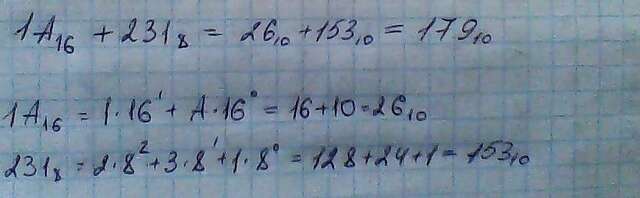 1A₁₆ + 231₈ = 26₁₀ + 153₁₀ = 179₁₀
1A₁₆ = 1·16¹ + A·16⁰ = 16+10=26₁₀
231₈ = 2·8² + 3·8¹ + 1·8⁰ = 128+24+1 = 153₁₀